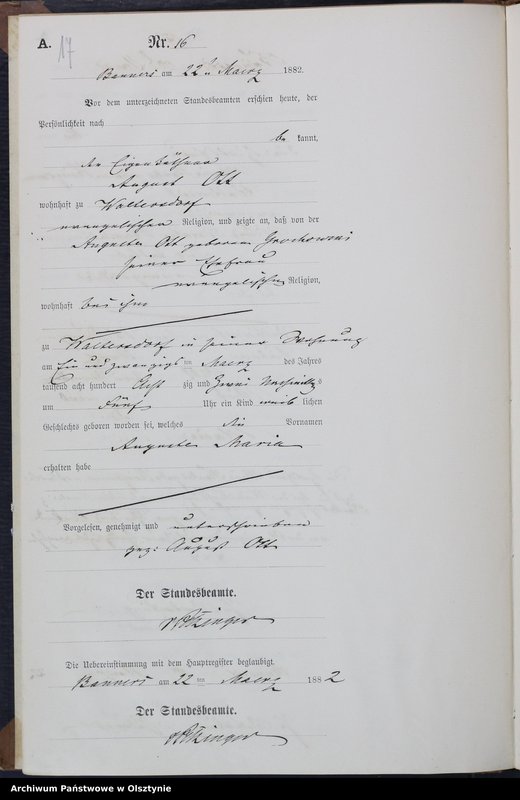 A. 17 Nr. 16
Banners am 22ten Maerz 1882.
Vor dem unterzeichneten Standesbeamten erschien heute, der
Persönlichkeit nach
be kannt,
der Eigenkäthner
August Ott
wohnhaft zu Waltersdorf
evangelischer Religion, und zeigte an, daß von der
Auguste Ott geborene Grochowski
seiner Ehefrau
evangelischer Religion,
wohnhaft bei ihm
zu Waltersdorf in seiner Wohnung
am Ein und zwanzigsten Maerz des Jahres
tausend acht hundert Acht zig und Zwei Nachmittags
um Fünf Uhr ein Kind weib lichen
Geschlechts geboren worden sei, welches die Vornamen
Auguste Maria
erhalten habe
Vorgelesen, genehmigt und unterschrieben
gez: August Ott
Der Standesbeamte.
Die Uebereinstimmung mit dem Hauptregister beglaubigt.
Banners am 22 ten Maerz 1882
Der Standesbeamte.
Archiwum Państwowe w Olsztynie